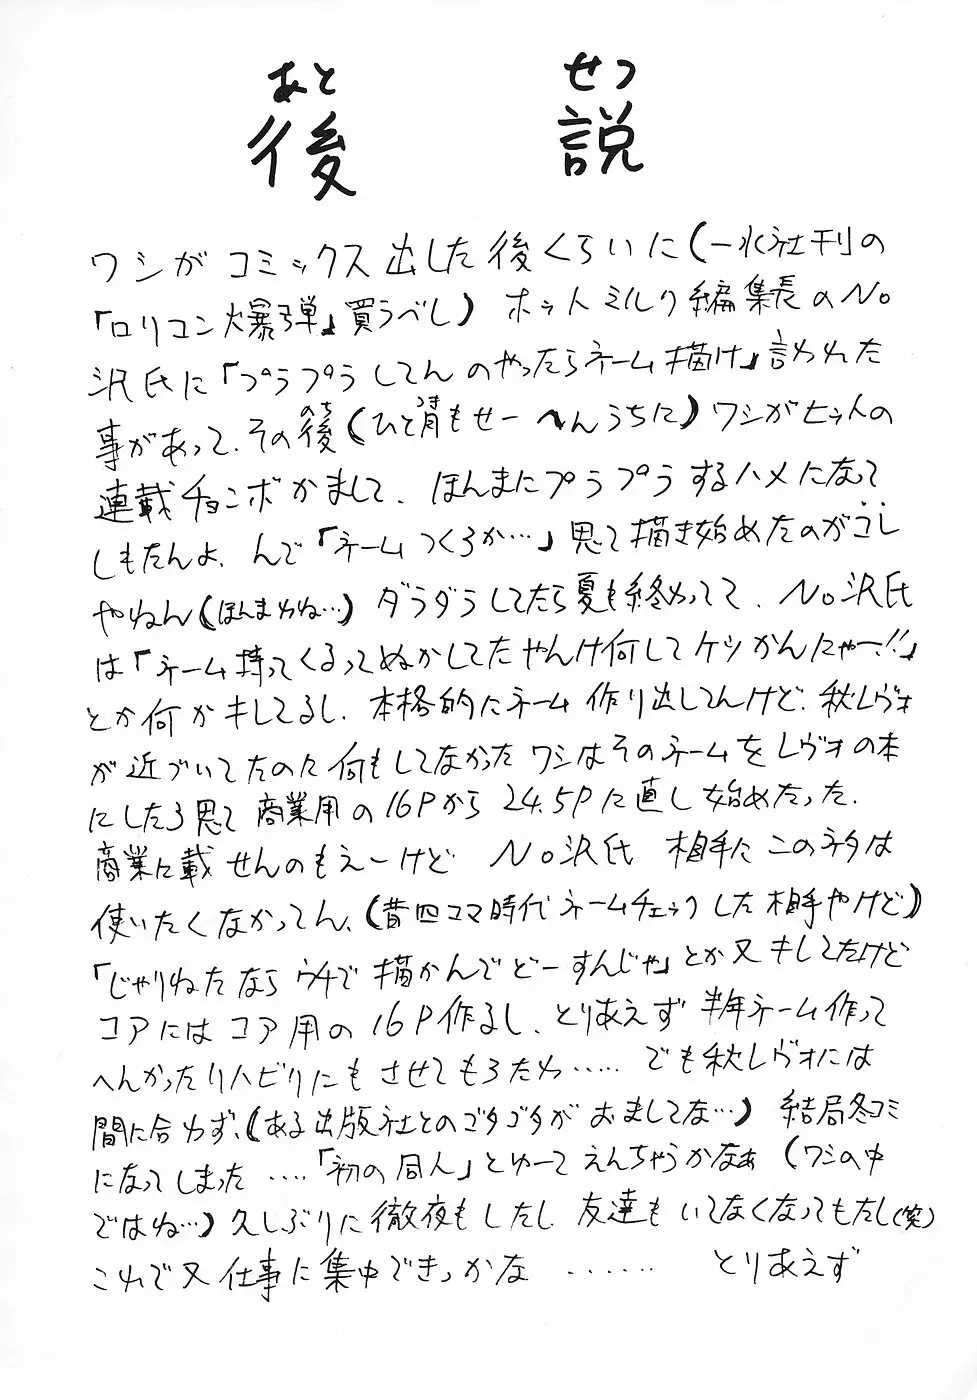 あと せつ
後 説
ワシがコミックス出した後くらいに(一水社刊の
「ロリコン爆弾」買うべし) ホットミルク編集長のNo
沢氏に「プラプラしてんのやったらネーム描け」言われた
事があって、その後(のち)(ひと月(つき)もせーへんうちに)ワシがヒットの
連載チョンボかまして、ほんまにプラプラするハメになって
しもたんよ、んで「ネームつくろか…」思て描き始めたのがコレ
やねん(ほんまかね…) ダラダラしてたら夏も終わってて、No沢氏
は「ネーム持ってくるってぬかしてたやんけ何してケツかんにゃー!!」
とか何かキしてるし、本格的にネーム作り出してんけど、秋レヴォ
が近づいてたのに何もしてなかったワシはそのネームをレヴォの本
にしたろ思て商業用の16Pから24.5Pに直し始めたった.
商業に載せんのもえーけど No沢氏 相手にこのネタは
使いたくなかってん、(昔四コマ時代ネームチェックした相手やけど)
「じゃりねたならウチで描かんでどーすんじゃ」とか又キしてたけど
コアにはコア用の16P作るし、とりあえず半年ネーム作って
へんかったリハビリにもさせてもろたわ…… でも秋レヴォには
間に合わず、(ある出版社とのゴタゴタがおましてな…) 結局冬コミ
になってしまった ….「初の同人」とゆーてえんちゃうかなぁ (ワシの中
ではね…)久しぶりに徹夜もしたし 友達もいてなくなってもたし(笑)
これで又仕事に集中できっかな ……… とりあえず